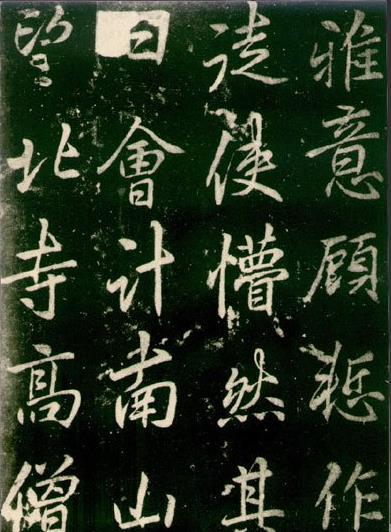 雅意顧慙作
徒使懵然其
日會計南山
望北寺高僧